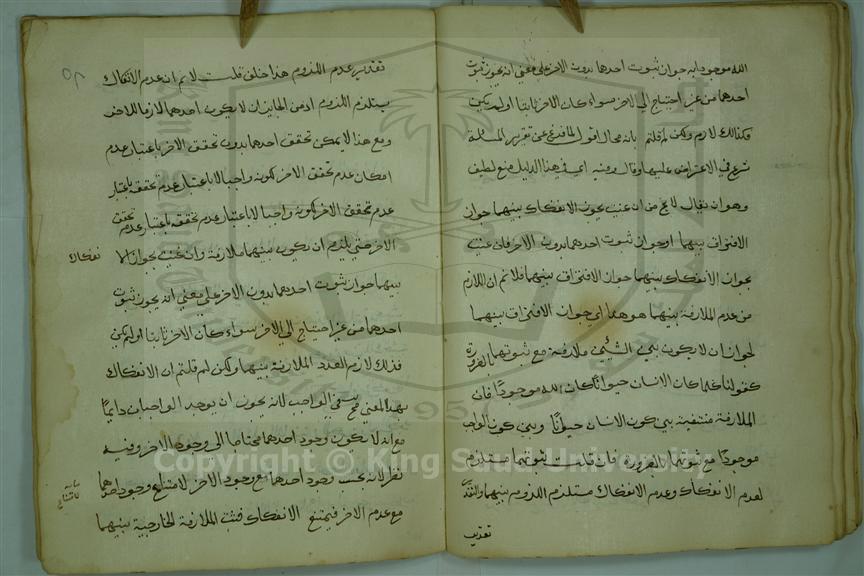 الله موجودا به جواز ثبوت احدهما بدون الاخر على معنى انه يجوز ثبوت
احدهما من غير احتياج الى الاخر سواء كان الاخر ثابتا او لم يكن
فذلك لازم ولكن لم قلتم بانه محال اقول لما فرغ عن تقرير المسئلة
شرع في الاعتراض عليها وقال وفيه اى في هذا الدليل منع لطيف
وهو ان نقول لا يخ من ان عنيت بجواز الانفكاك بينهما جواز
الافتراق بينهما او جواز ثبوت احدهما بدون الاخر فان عنيت
بجواز الانفكاك بينهما جواز الافتراق بينهما فلا نم ان اللازم
من عدم الملازمة بينهما هو هذا اى جواز الافتراق بينهما
لجواز ان لا يكون بين الشيئين ملازمة مع ثبوتهما بالضرورة
كقولنا كلما كان الانسان حيوانا كان الله موجودا فان
الملازمة منتفية بين كون الانسان حيوانا وبين كون الواجب
موجودا مع ثبوتهما بالضرورة فان قلت ثبوتهما مستلزم
لعدم الانفكاك وعدم الانفكاك مستلزم اللزوم بينهما والتقدير
تقدير
تقدير عدم اللزوم هذا خلف قلت لا نم ان عدم الانفكاك
يستلزم اللزوم اذ من الجايز ان لا يكون احدهما لازما للاخر
ومع هذا لا يمكن تحقق احدهما بدون تحقق الاخر باعتبار عدم
امكان عدم تحقق الاخر لكونه واجبا لا باعتبار عدم تحققه باعتبار
عدم تحقق الاخر لكونه واجبا لا باعتبار عدم تحققه باعتبار عدم تحقق
الاخر حتى يلزم ان يكون بينهما ملازمة وان عنيت بجواز الا نفكاك
بينهما جواز ثبوت احدهما بدون الاخر على معنى انه يجوز ثبوت
احدهما من غير احتياج الى الاخر سواء كان الاخر ثابتا او لم يكن
فذلك لازم لعدم الملازمة بينهما ولكن لم قلتم ان الانفكاك
بهذا المعنى في الواجب لانه يجوز ان يوجد الواجبان دايما
مع انه لا يكون وجود احدهما محتاجا الى وجود الاخر وفيه
نظر لانه يجب وجود احدهما مع وجود الاخر لامتناع وجود احدهما
مع عدم الاخر فيمتنع الانفكاك فثبت الملازمة الخارجية بينهما
Copyright © King Saud University